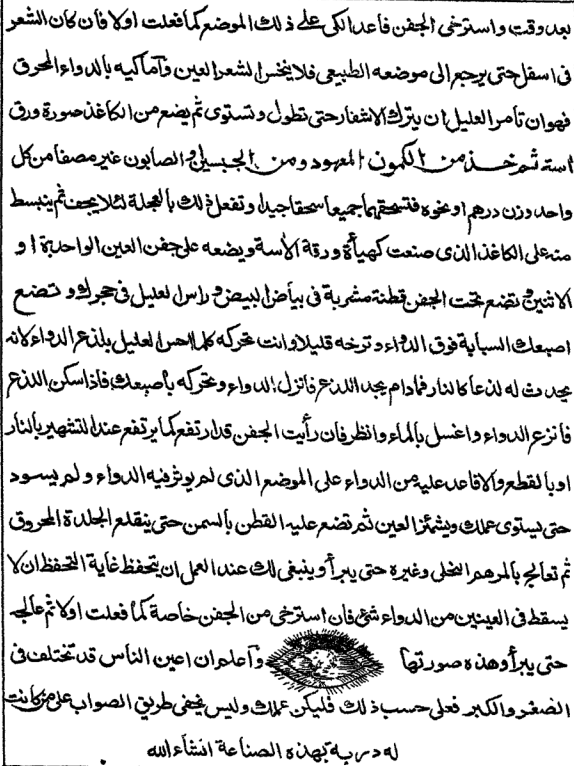 بعد وقت واسترخى الجفن فاعد الكى على ذلك الموضع كما فعلت اولا فان كان الشعر
فى اسفل حتى يرجع الى موضعه الطبيعى فلا ينخس الشعر العين وأما كيه بالدواء المحرق
فهوان تأمر العليل ان يترك الاشفار حتى تطول وتستوى ثم يضع من الكاغذ صورة ورق
آسته ثم خذ من الكمون المعهود ومن الجبسين والصابون غير مصفا من كل
واحد وزن درهم او نحوه فتسحقهما جميعا سحقا جيدا وتفعل ذلك بالعجلة لئلا يجف ثم ينبسط
منه على الكاغذ الذى صنعت كهيأة ورقة الأسة ويضعه على جفن العين الواحدة او
الاثنين وتضع تحت الجفن قطنة مشربة فى بياض البيض وراس العليل فى حجرك وتضع
اصبعك السبابة فوق الدواء وترخه قليلا وانت تحركه كلما احس العليل بلذع الدواء لانه
يحدث له لذعا كالنار فمادام يجد اللدغ فانزل الدواء وتحركه بأصبعك فاذا سكن اللذع
فأنزع الدواء واغسل بالماء وانظر فان رأيت الجفن قد ارتفع كما يرتفع عند التشهير بالنار
او بالقطع والا فاعد عليه من الدواء على الموضع الذى لم يوثر فيه الدواء ولم يسود
حتى يستوى عملك ويشمئز العين ثم تضع عليه القطن بالسمن حتى ينقلع الجلدة المحروق
ثم تعالج بالمرهم النخلى وغيره حتى يبرأ وينبغى لك عند العمل ان يتحفظ غاية التحفظ ان لا
يسقط فى العينين من الدواء شئ فان استرخى من الجفن خاصة كما فعلت اولا ثم عالجه
حتى يبرأ وهذه صورتها واعلم ان اعين الناس قد تختلف فى
الصغر والكبر فعلى حسب ذلك فليكن عملك وليس يخفى طريق الصواب على من كانت
له دربة بهذه الصناعة انشاء الله